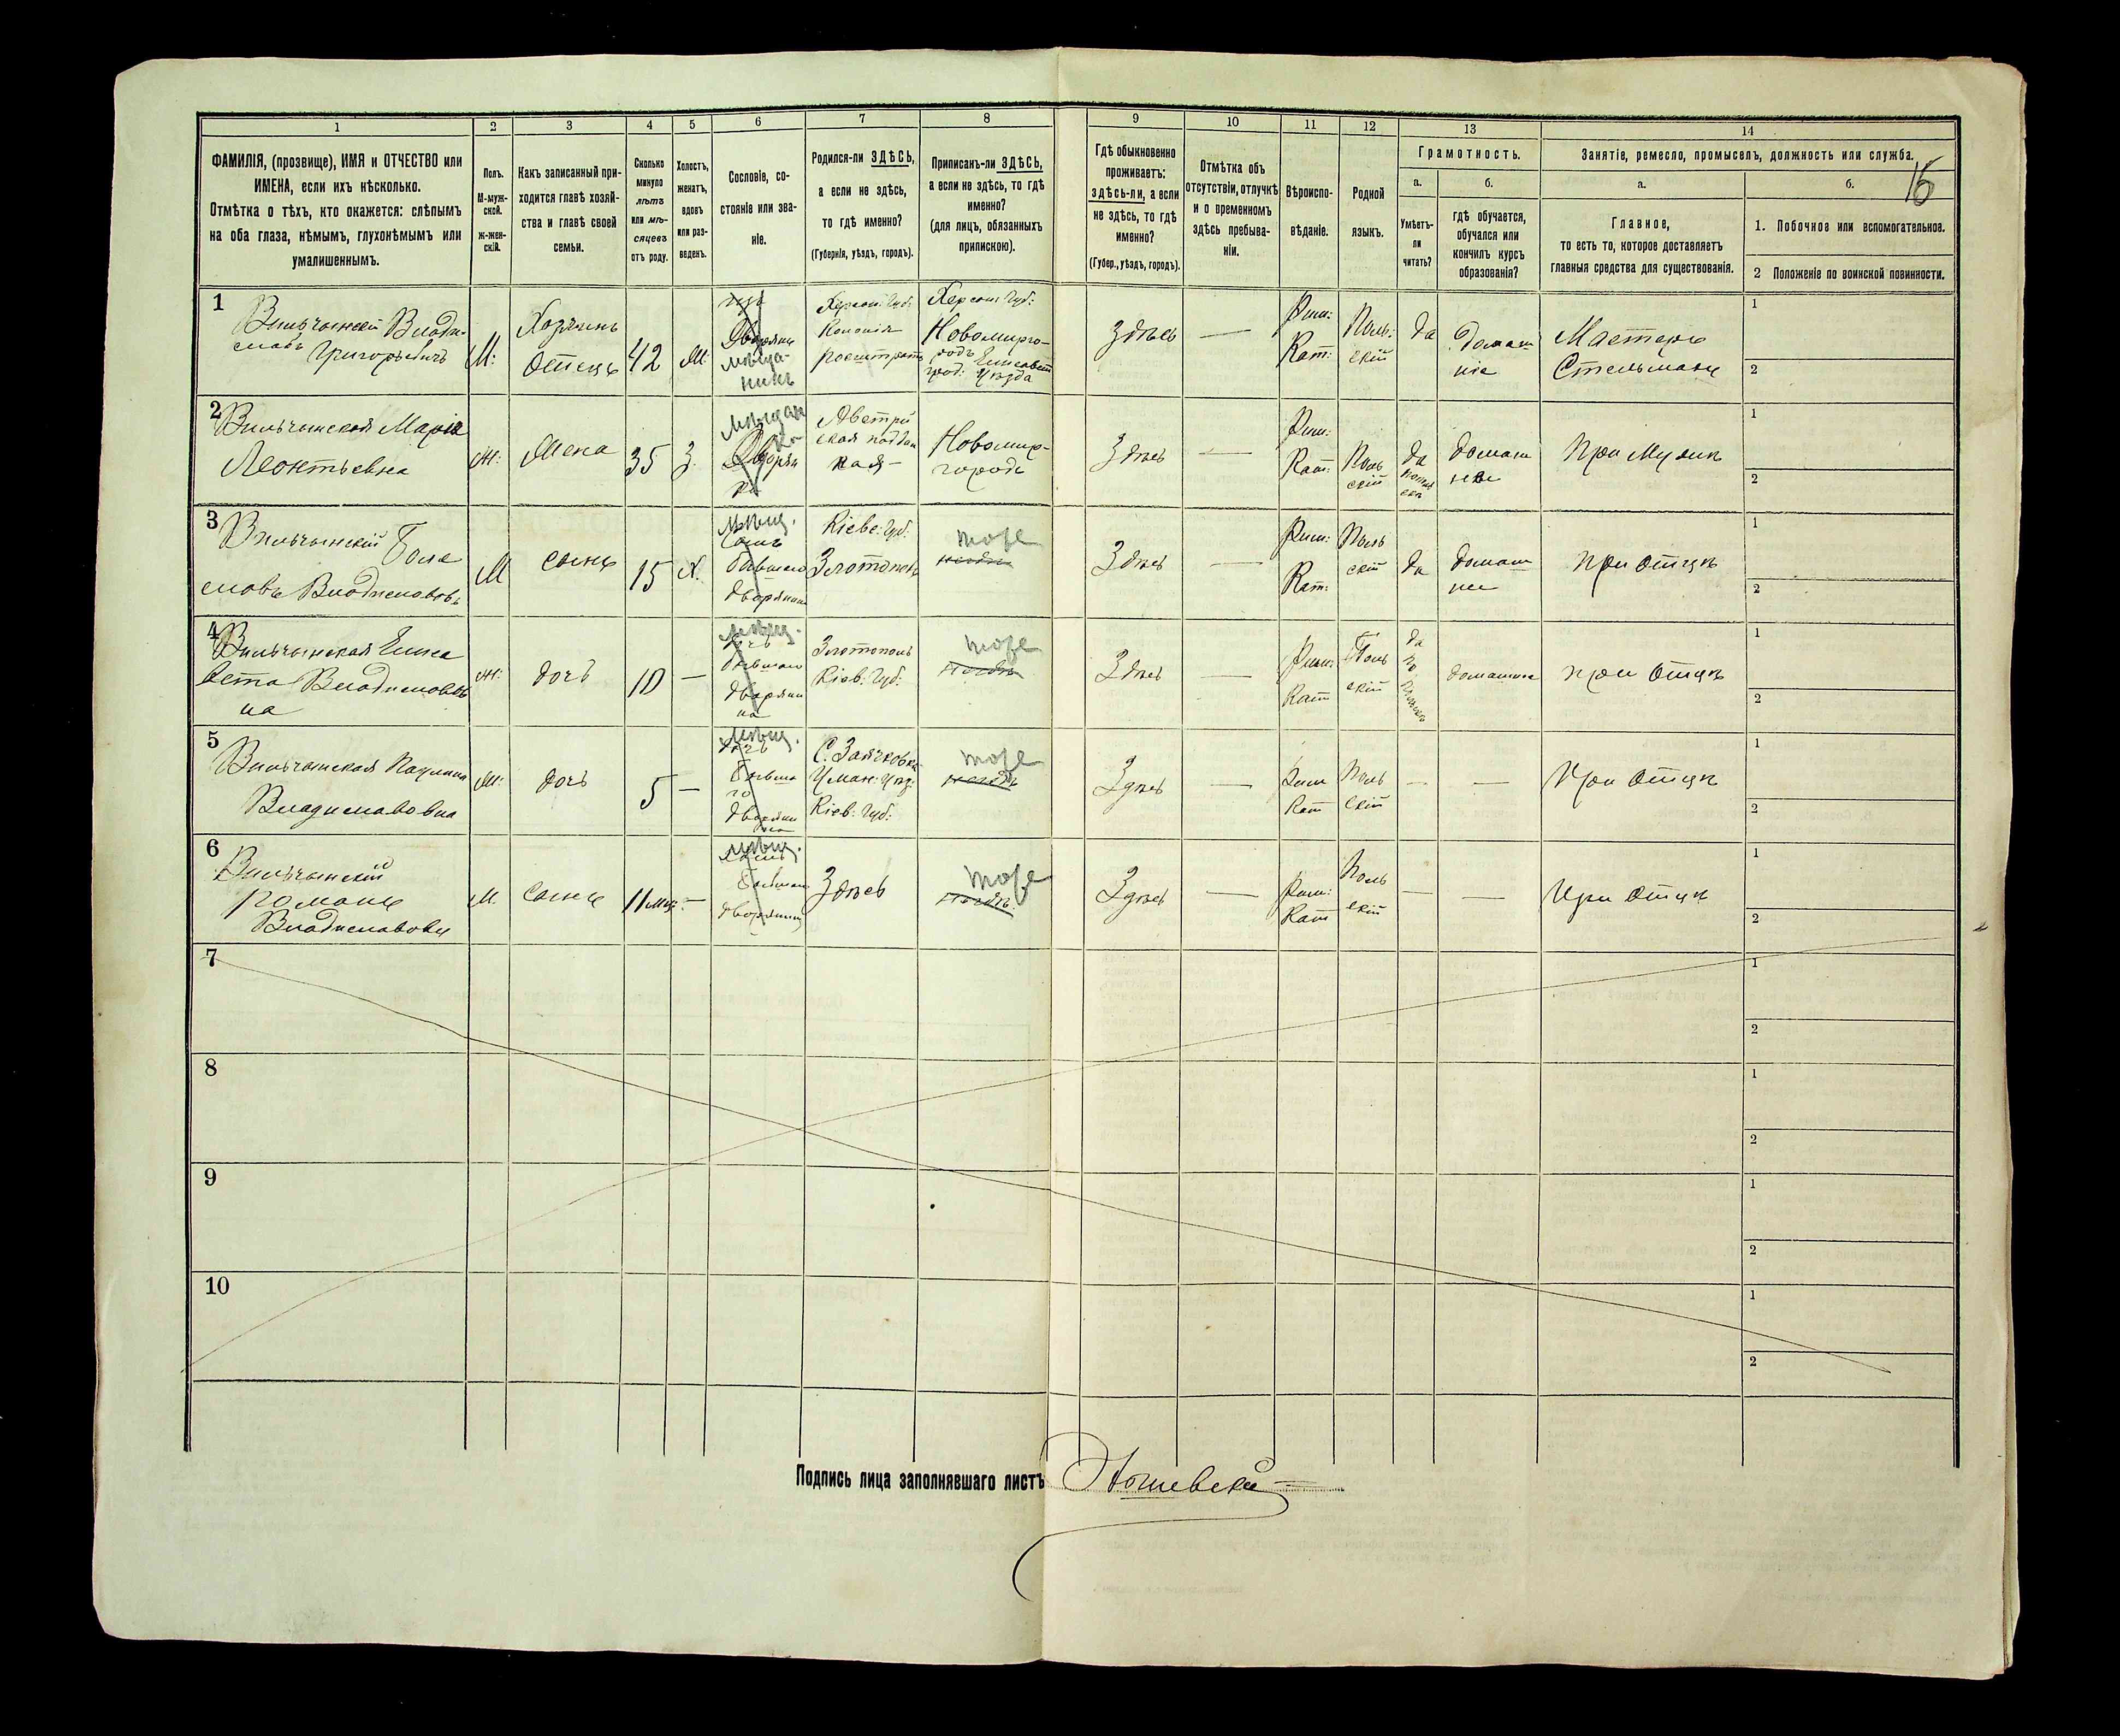 1 2 3 4 5 6 7 8 9 10 11 12 13 14
ФАМИЛІЯ, (прозвище), ИМЯ и ОТЧЕСТВО или
ИМЕНА, если ихъ нѣсколько.
Отмѣтка о тѣхъ, кто окажется: слѣпымъ
на оба глаза, нѣмымъ, глухонѣмымъ или
умалишеннымъ.
Полъ.
М-муж-
ской.
Ж-жен-
скій.
Какъ записанный при-
ходится главѣ хозяй-
ства и главѣ своей
семьи.
Сколько
минуло
лѣтъ
или мѣ-
сяцевъ
отъ роду.
Холостъ,
женатъ,
вдовъ
или раз-
веденъ.
Сословіе, со-
стояніе или зва-
ніе.
Родился-ли ЗДѢСЬ,
а если не здѣсь,
то гдѣ именно?
(Губернія, уѣздъ, городъ).
Приписанъ-ли ЗДѢСЬ,
а если не здѣсь, то гдѣ
именно?
(для лицъ, обязанныхъ
припискою).
Гдѣ обыкновенно
проживаетъ:
здѣсь-ли, а если
не здѣсь, то гдѣ
именно?
(Губер., уѣздъ, городъ).
Отмѣтка объ
отсутствіи, отлучкѣ
и о временномъ
здѣсь пребыва-
ніи.
Вѣроиспо-
вѣданіе.
Родной
языкъ.
Грамотность.
а.
Умѣетъ-
ли
читать?
б.
гдѣ обучается,
обучался или
кончилъ курсъ
образованія?
Занятіе, ремесло, промыселъ, должность или служба.
а.
Главное,
то есть то, которое доставляетъ
главныя средства для существованія.
б.
1. Побочное или вспомогательное.
2 Положеніе по воинской повинности.
1
Вильчынскій Влади-
славъ
Григорьевичъ
М:
Хозяинъ
Отецъ
42
Дворянинъ
мѣща-
нинъ
Херсон: Губ:
Колонія
Херсон: Губ:
Новомирго-
родъ Елисавет
град: Уѣзда
Здѣсь
—
Рим:
Кат:
Поль:
скій
да
Домаш
ніе
Мастеръ
Стельмахъ
1
2
2
Вильчынская Марія
Леонтьевна
Ж:
Жена
35
З.
Мѣщан
ка
Дворян
ка
Австрій
ская поддан
ная —
Новомир-
городъ
Здѣсь
—
Рим:
Кат:
Поль
скій
да
Домаш
нее
При Мужѣ
1
2
3
Вильчынскій Боле
славъ Владиславовъ
М
сынъ
15
Х.
Мѣщ.
Сынъ
бывшаго
дворянина
Кіевс: Губ:
Златополь
тоже
Здѣсь
—
Рим:
Кат:
Поль
скій
да
Домаш
нее
при Отцѣ
1
2
4
Вильчынская Елиса
вета Владиславов
на
Ж:
дочь
10
—
Мѣщ.
дочь
бывшаго
дворяни
на
Златополь
Кіев: Губ:
тоже
Здѣсь
—
Рим:
Кат
Поль
скій
да
домашнее
при Отцѣ
1
2
5
Вильчынская Паулина
Владиславовна
дочь
5
—
Мѣщ.
дочь
Бывша
го
дворяни
на
Уман: Уѣз:
Кіев: Губ:
тоже
Здѣсь
—
Рим
Кат
Поль
скій
—
—
При Отцѣ
1
2
6
Вильчынскій
Романъ
Владиславовъ
М.
Сынъ
11 мѣс:
—
Мѣщ.
Сынъ
Бывшаго
дворянина
Здѣсь
тоже
Здѣсь
—
Рим:
Кат
Поль
скій
—
—
При Отцѣ
1
2
7
1
2
8
1
2
9
1
2
10
1
2
Подпись лица заполнявшаго листъ